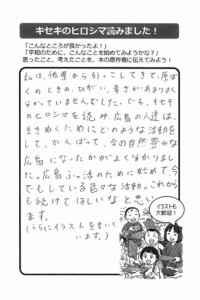 キセキのヒロシマ読みました！
「こんなところが良かったよ！」
「平和のために、こんなことを始めてみようかな？」
思ったこと、考えたことを、本の原作者に伝えてみよう！
私は、他県から引っこしてきて、原ば
くのときの、ひがい、辛さがあまりよく
分かっていませんでした。でも、キセキ
のヒロシマを読み、広島の人達は、
生きぬくためにどのような活動を
して、がんばって、今の自然豊かな
広島になったかがよく分かりまし
た。広島ふっ活のために始めて、今
でもしている色々な活動。これから
も続けてほしいなと思い
ます。
(うらにイラストをかいて
います。)
イラストも
大歓迎！